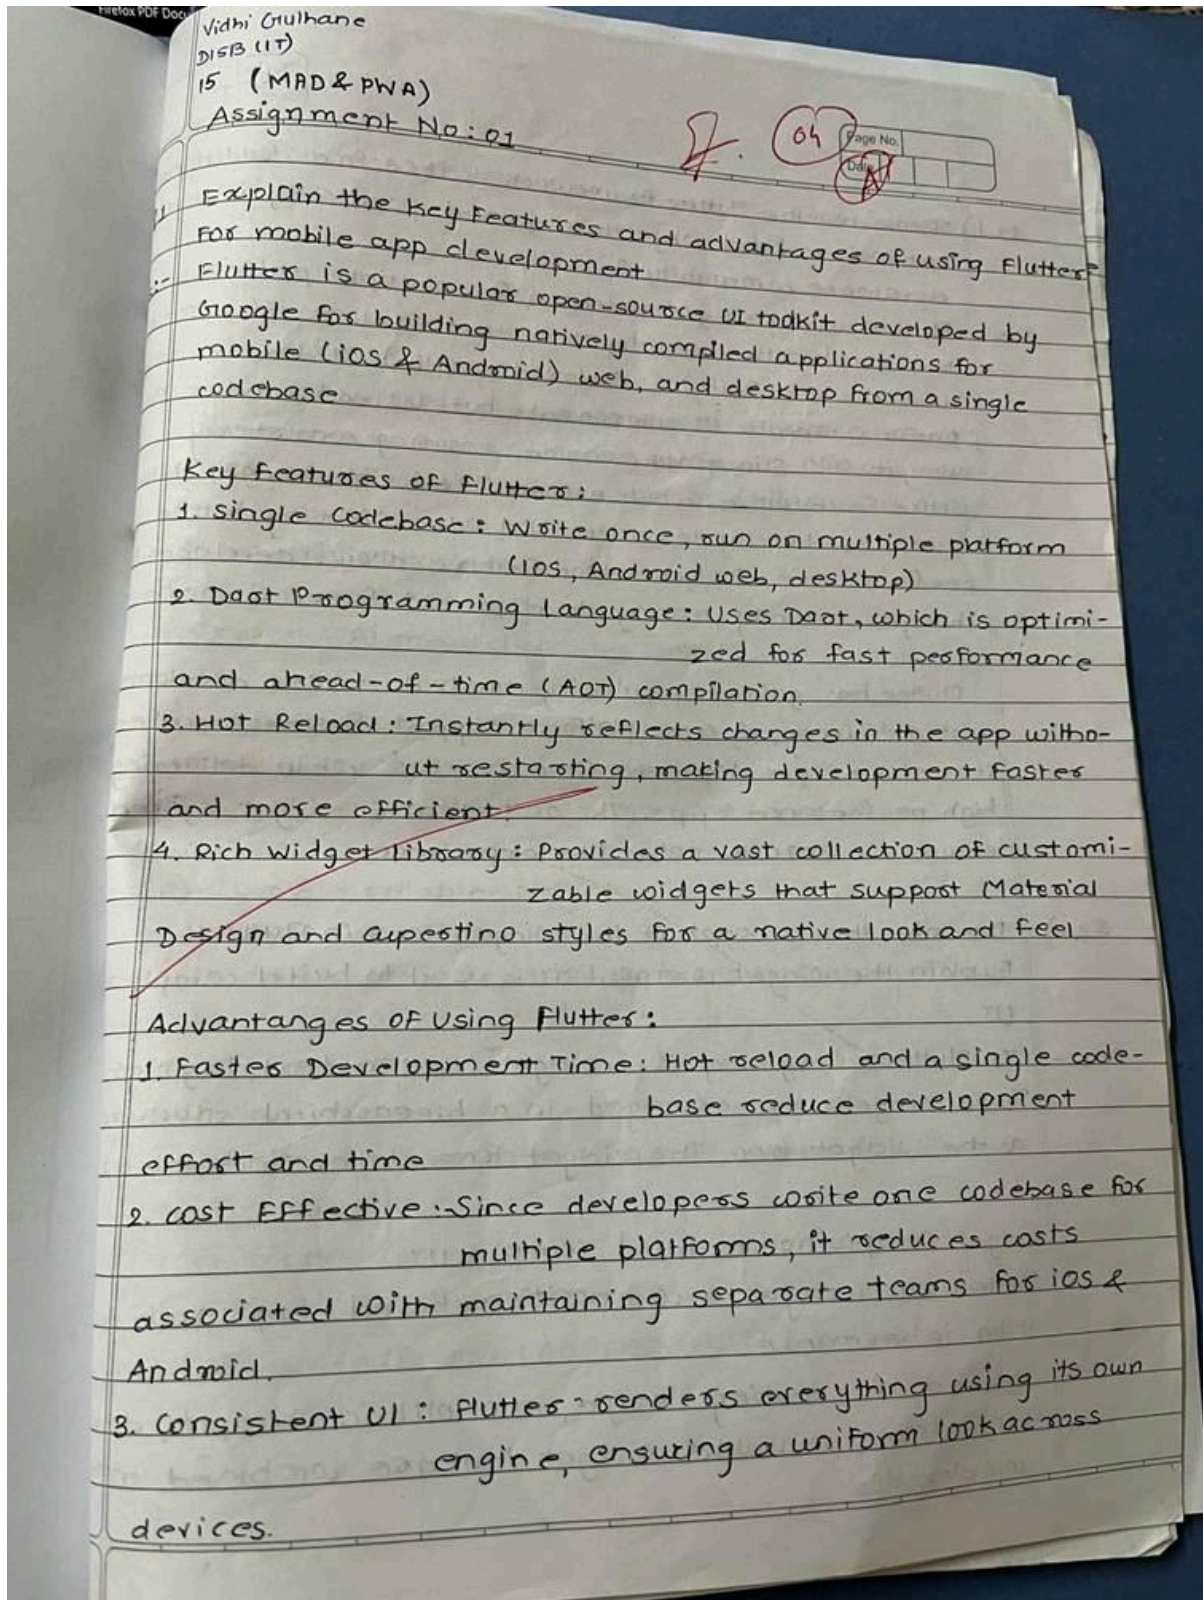 Firefox PDF Docu
Vidhi Gulhane
D15B (IT)
15 (MAD & PWA)
Assignment No: 01
04
Page No.
Date
Explain the Key Features and advantages of using flutter
For mobile app development
Flutter is a popular open-source UI toolkit developed by
Google for building natively compiled applications for
mobile (ios & Android) web, and desktop from a single
codebase
Key features of Flutter:
1. single codebase: Write once, run on multiple platform
(ios, Android web, desktop)
2. Dart Programming Language: Uses Dart, which is optimi-
zed for fast performance
and ahead-of-time (AOT) compilation.
3. Hot Reload: Instantly reflects changes in the app witho-
ut restarting, making development faster
and more efficient.
4. Rich Widget library: Provides a vast collection of customi-
zable widgets that support Material
Design and cupertino styles for a native look and feel
Advantanges of Using Flutter:
1. Faster Development Time: Hot reload and a single code-
base reduce development
effort and time
2. cost Effective:-Since developers write one codebase for
multiple platforms, it reduces costs
associated with maintaining separate teams for ios &
Android.
3. Consistent UI: flutter renders everything using its own
engine, ensuring a uniform look across
devices.